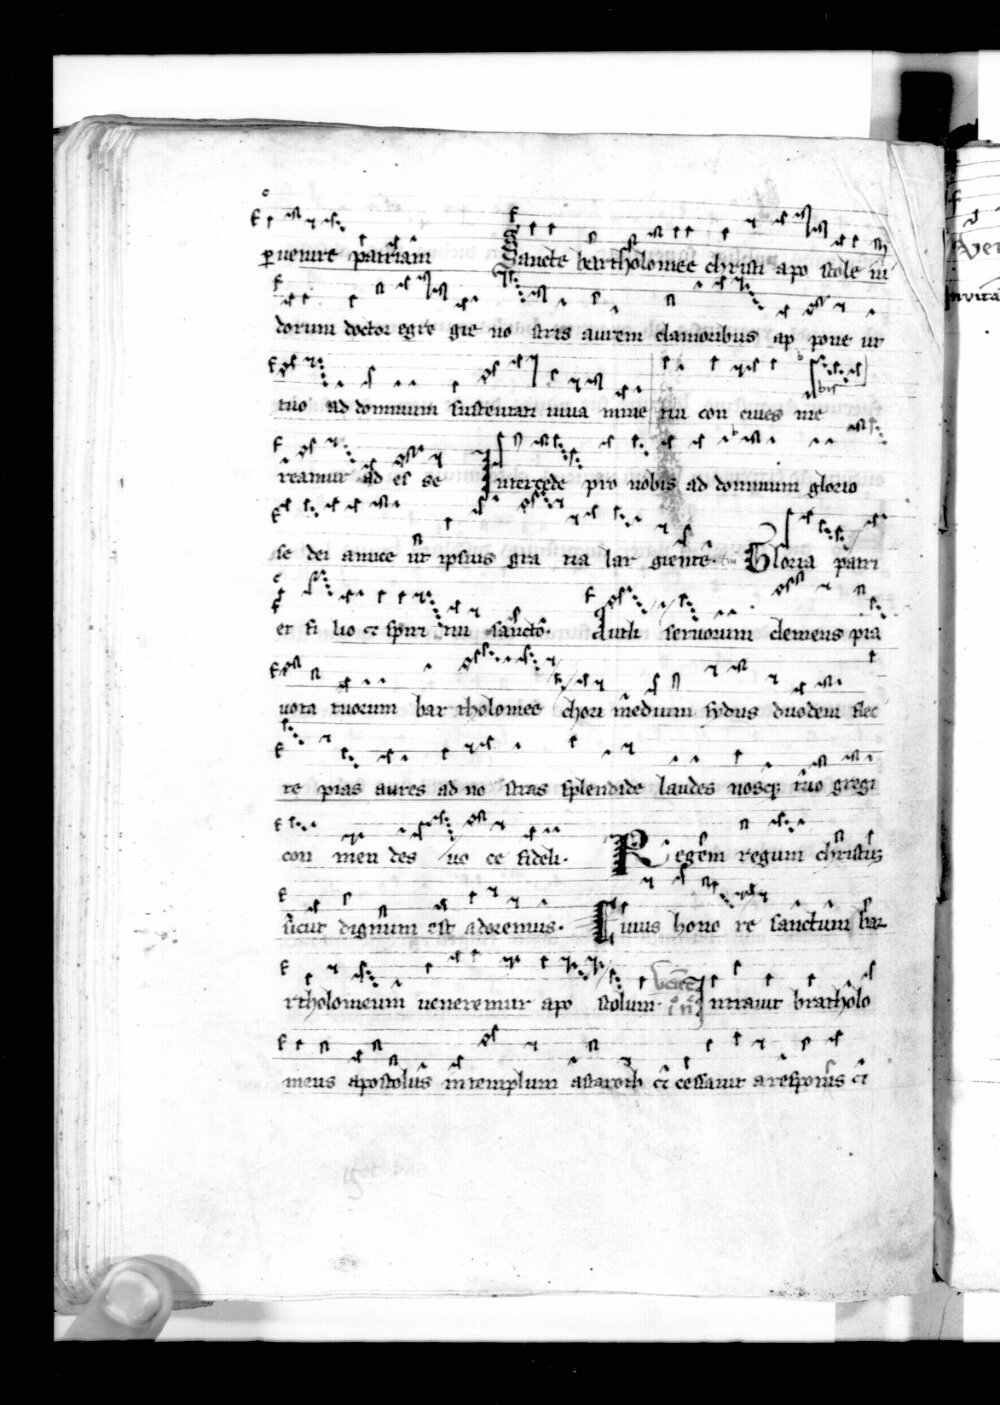 ꝑuenire patriam Sancte bartholomee christi apo stole in
dorum doctor egre gie no stris aurem clamoribus ap pone ut
tuo ad dominum sustentati iuua mine tui con ciues me
reamur ad es se Intercede pro nobis ad dominum glorio
se dei amice ut ipsius gra tia lar giente. Gloria patri
et fi lio et spiri tui sancto. Auli seruorum clemens pia
uota tuorum bar tholomee chori medium sydus duodeni flec
te pias aures ad no stras splendide laudes nosqꝫ tuo gregi
con men des uo ce fideli. Regem regum christus
sicut dignum est adoremus. Cuius hono re sanctum bar
rtholomeum ueneremur apo stolum Intrauit bratholo
meus apostolus in templum astaroth et cessauit a responsis et